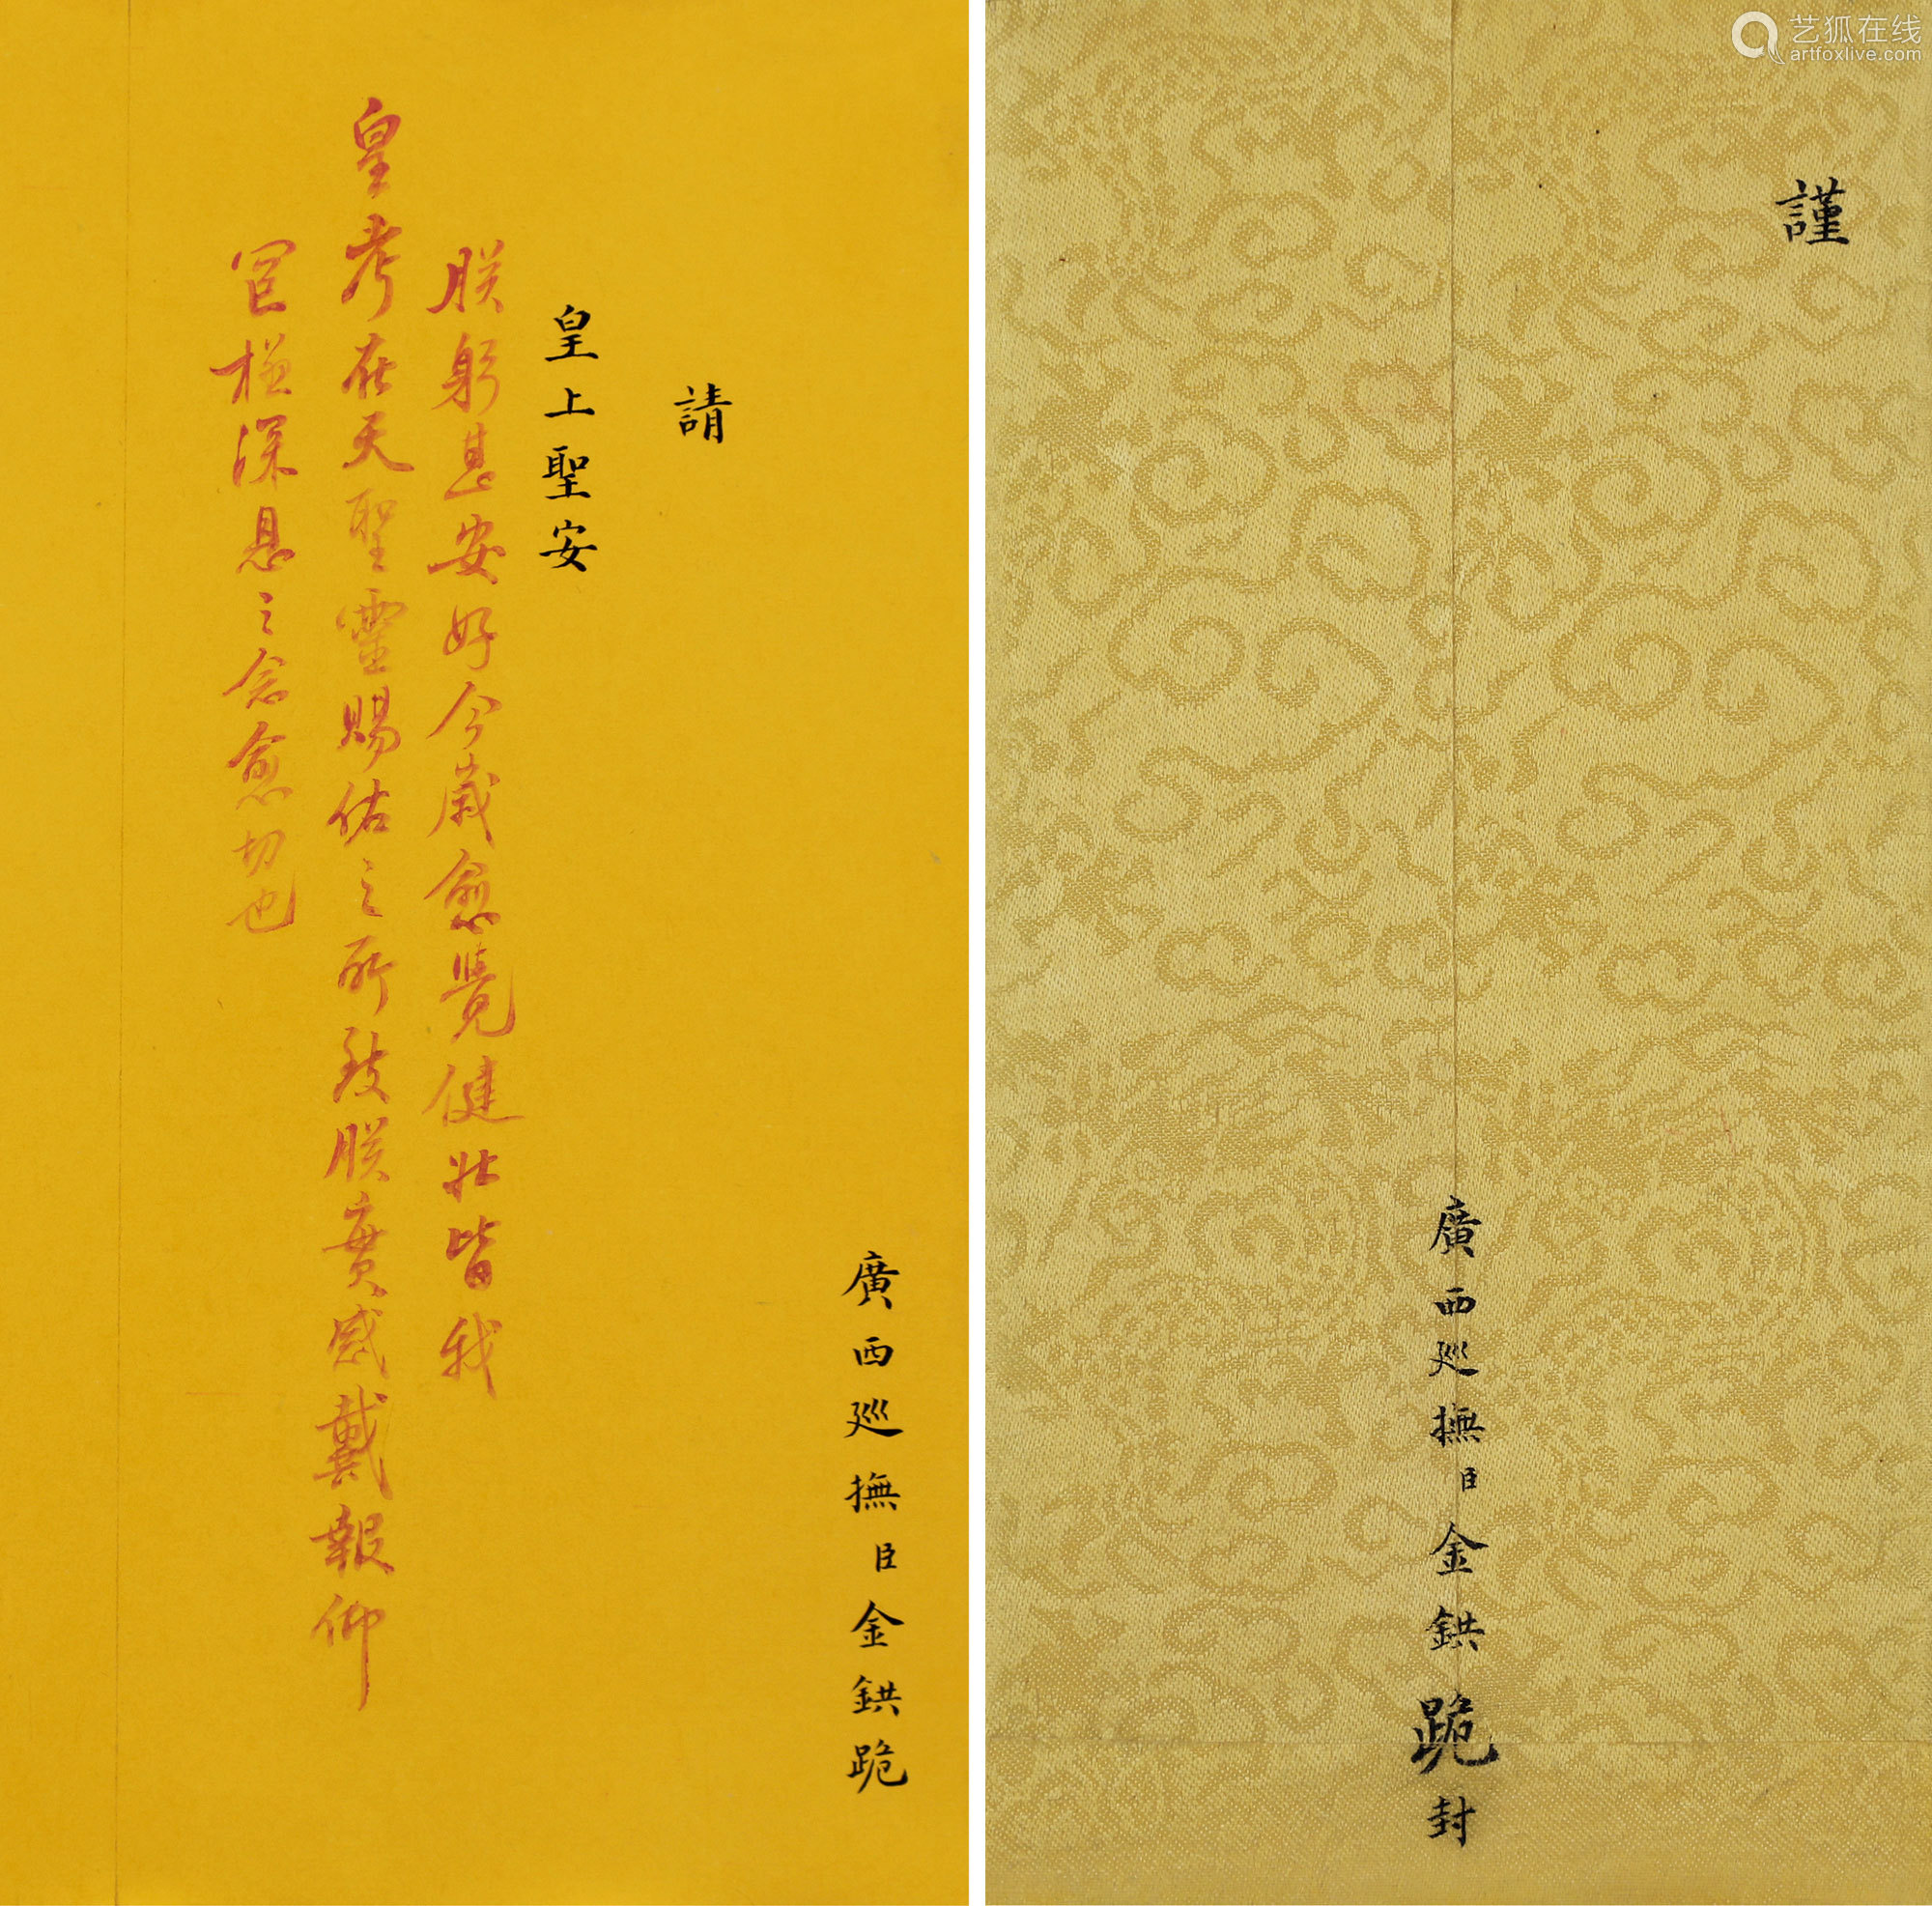 廣西巡撫臣金鉷跪
請
皇上聖安
朕躬甚安好今歲愈覺健壯皆我
皇考在天聖靈賜佑之所致朕實感戴報仰
罔極深恩之念愈切也
謹
廣西巡撫臣金鉷跪封
艺狐在线
artfoxlive.com